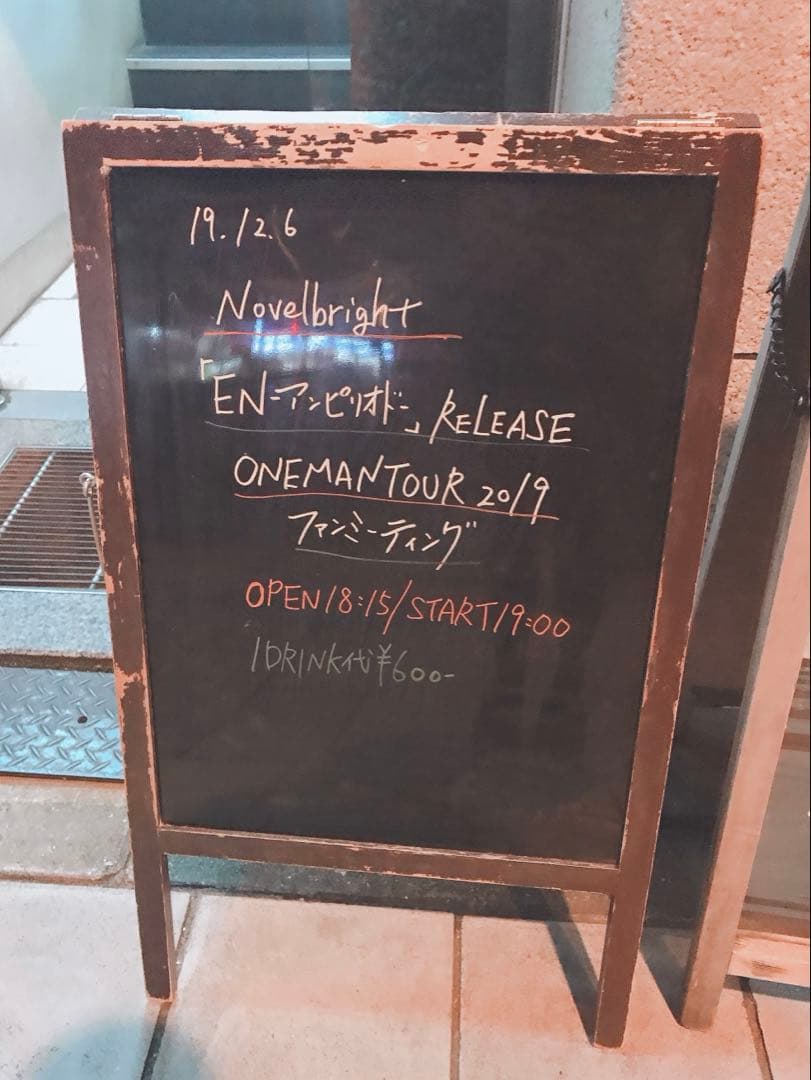 19.12.6
Novelbright
「EN-アンピリオド-」RELEASE
ONEMANTOUR 2019
ファンミーティング
OPEN18:15/START19:00
1DRINK代¥600-